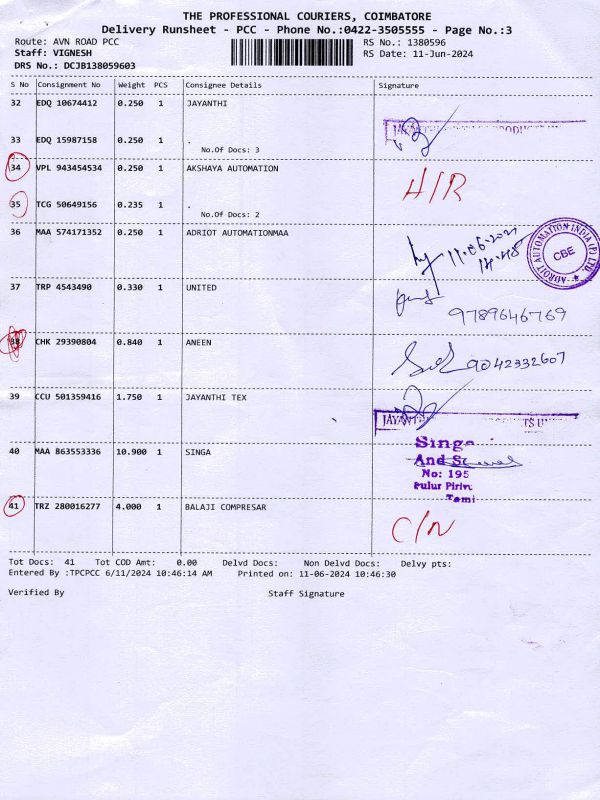 THE PROFESSIONAL COURIERS, COIMBATORE
Delivery Runsheet - PCC - Phone No.:0422-3505555 - Page No.:3
Route: AVN ROAD PCC
RS No.: 1380596
Staff: VIGNESH
RS Date: 11-Jun-2024
DRS No.: DCJB138059603
S No Consignment No Weight PCS Consignee Details Signature
32 EDQ 10674412 0.250 1 JAYANTHI
33 EDQ 15987158 0.250 1 .
No.Of Docs: 3
34 VPL 943454534 0.250 1 AKSHAYA AUTOMATION
H/R
35 TCG 50649156 0.235 1 .
No.Of Docs: 2
36 MAA 574171352 0.250 1 ADRIOT AUTOMATIONMAA
ADROIT AUTOMATION INDIA (P) LTD.
CBE
37 TRP 4543490 0.330 1 UNITED
9789646769
38 CHK 29390804 0.840 1 ANEEN
9042332607
39 CCU 501359416 1.750 1 JAYANTHI TEX
40 MAA 863553336 10.900 1 SINGA
Singa
And
No: 195
41 TRZ 280016277 4.000 1 BALAJI COMPRESAR
C/N
Tot Docs: 41 Tot COD Amt: 0.00 Delvd Docs: Non Delvd Docs: Delvy pts:
Entered By :TPCPCC 6/11/2024 10:46:14 AM Printed on: 11-06-2024 10:46:30
Verified By Staff Signature